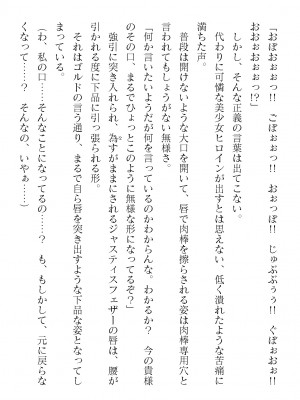 「おぼおぉぉっ!!　ごぼぉぉっ!!　おぉっぽ!!　じゅぶぶぅぅ!!　ぐぼぉぉおぉ!!
おおぉぉおぉぉっ!?」
　しかし、そんな正義の言葉は出てこない。
　代わりに可憐な美少女ヒロインが出すとは思えない、低く潰れたような苦痛に
満ちた声。
　普段は開けないような大口を開いて、唇で肉棒を擦らされる姿は肉棒専用穴と
言われてもしょうがない無様さ。
「何か言いたいようだが何を言っているのかわからんな。わかるか？　今の貴様
のその口、まるでひょっとこのように無様な形になってるぞ？」
　強引に突き入れられ、為すがままにされるジャスティスフェザーの唇は、腰が
引かれる度に下品に引っ張られる形。
　それはゴルドの言う通り、まるで自ら唇を突き出すような下品な姿となってし
まっている。
（わ、私の口……そんなことになってるの……？　も、もしかして、元に戻らな
くなって……？　そんなの、いやぁ……）